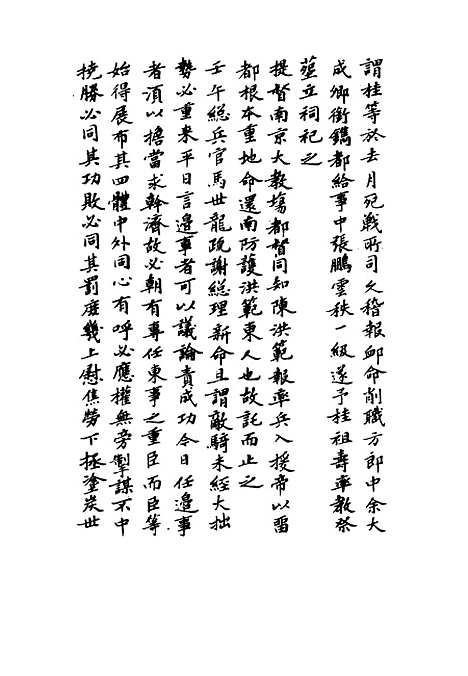 謂桂等於去月死戰所司久稽報卹命削職方郎中余大
成卿銜鐫都給事中張鵬雲秩一級遂予桂祖壽率教祭
塟立祠祀之
提督南京大教塲都督同知陳洪範報率兵入援帝以畱
都根本重地命還南防護洪範東人也故託而止之
壬午総兵官馬世龍疏謝総理新命且謂敵騎未經大拙
勢必重来平日言邊事者可以議論責成功今日任邊事
者湏以擔當求幹濟故必朝有專任東事之重臣而臣等
始得展布其四體中外同心有呼必應權無旁掣謀不中
撓勝必同其功敗必同其罰庶幾上慰焦勞下拯塗炭世